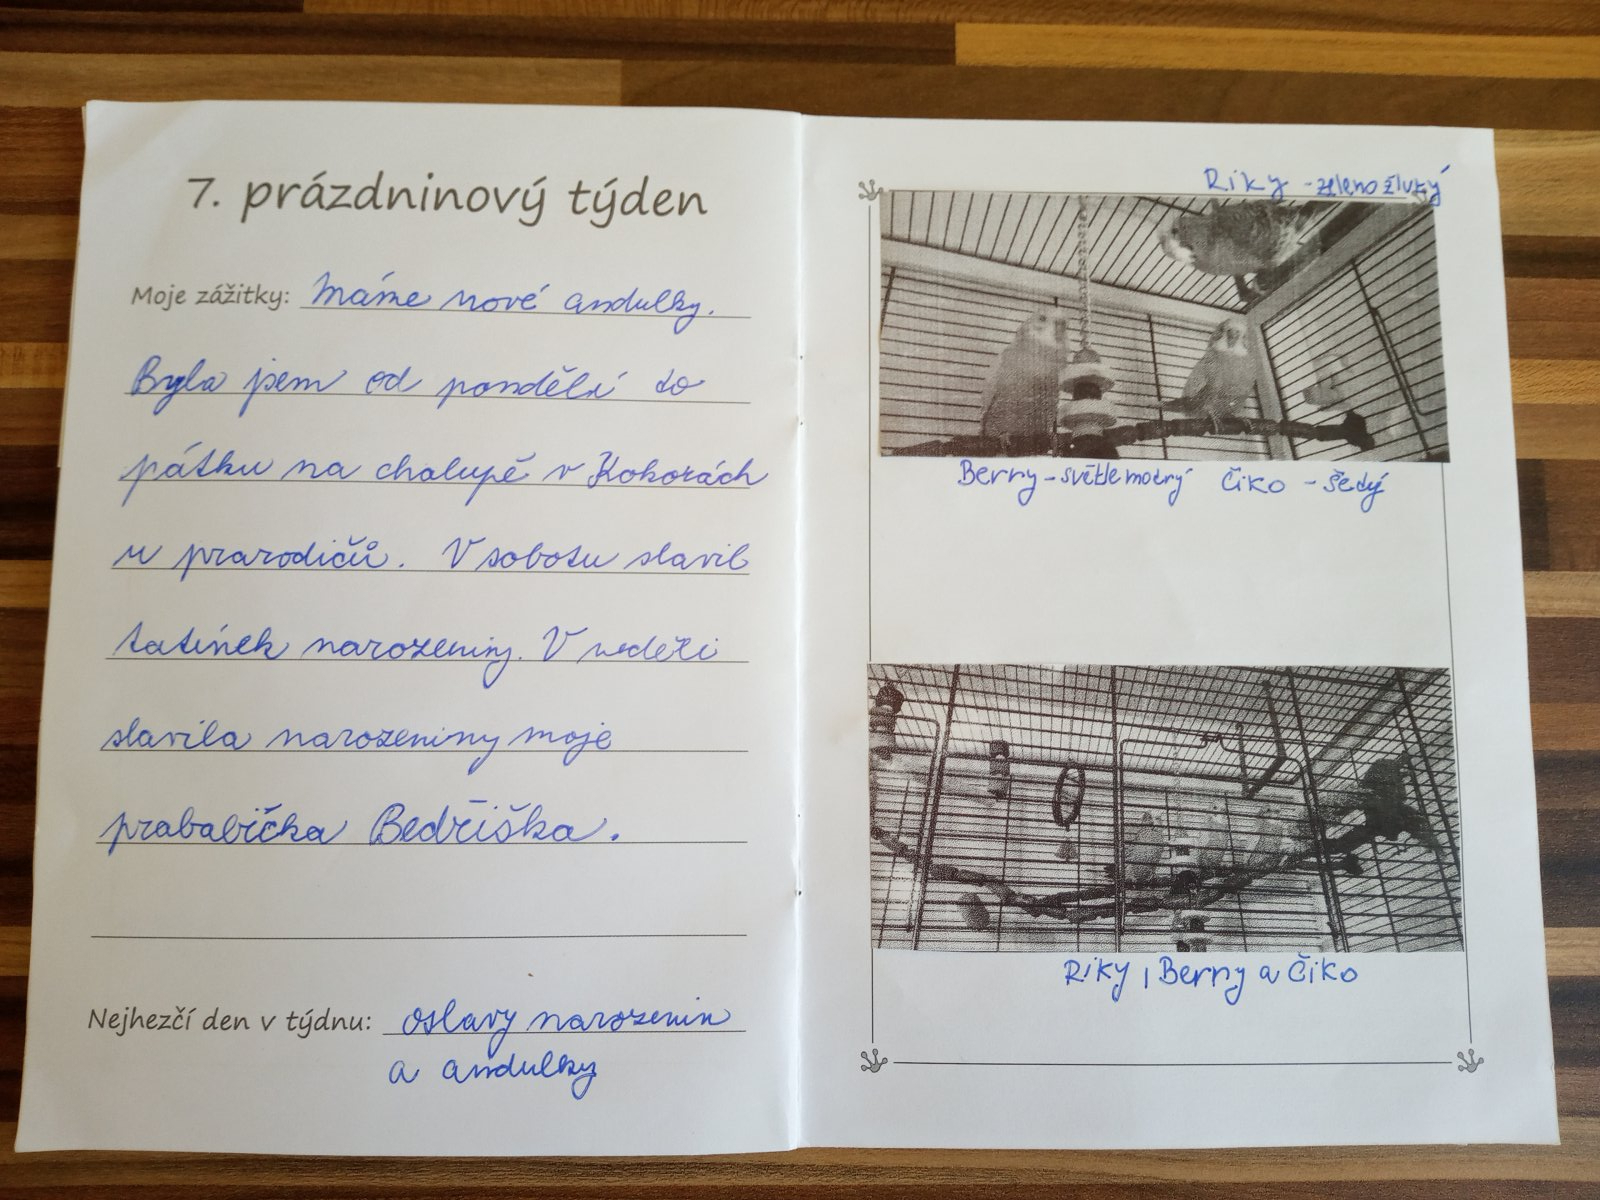 7. prázdninový týden
Moje zážitky: Máme nové andulky.
Byla jsem od pondělí do
pátku na chalupě v Kokorách
u prarodičů. V sobotu slavil
tatínek narozeniny. V neděli
slavila narozeniny moje
prababička Bedřiška.
Nejhezčí den v týdnu: oslavy narozenin
a andulky
Riky - zelenožlutý
Berry - světle modrý Čiko - šedý
Riky, Berry a Čiko